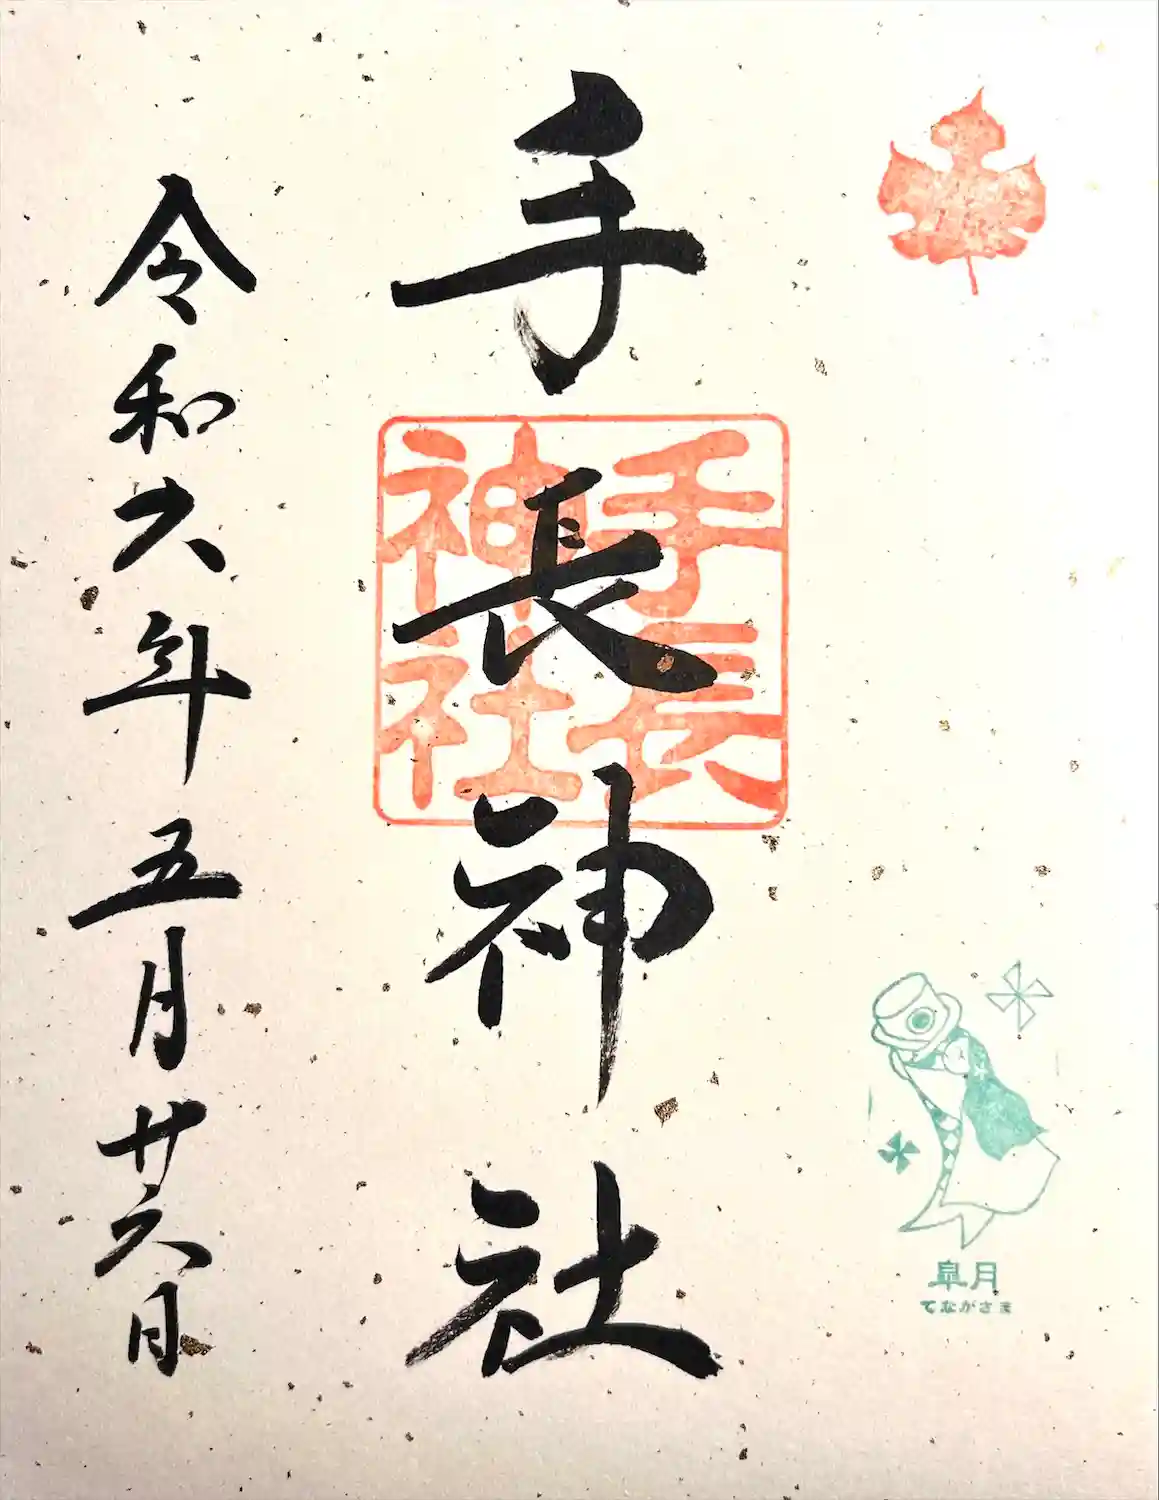 手長神社
手長
神社
令和六年五月廿六日
皐月
てながさま